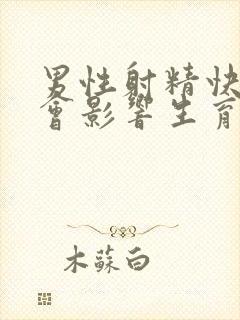 男性射精快
會影響生育
木蘇白